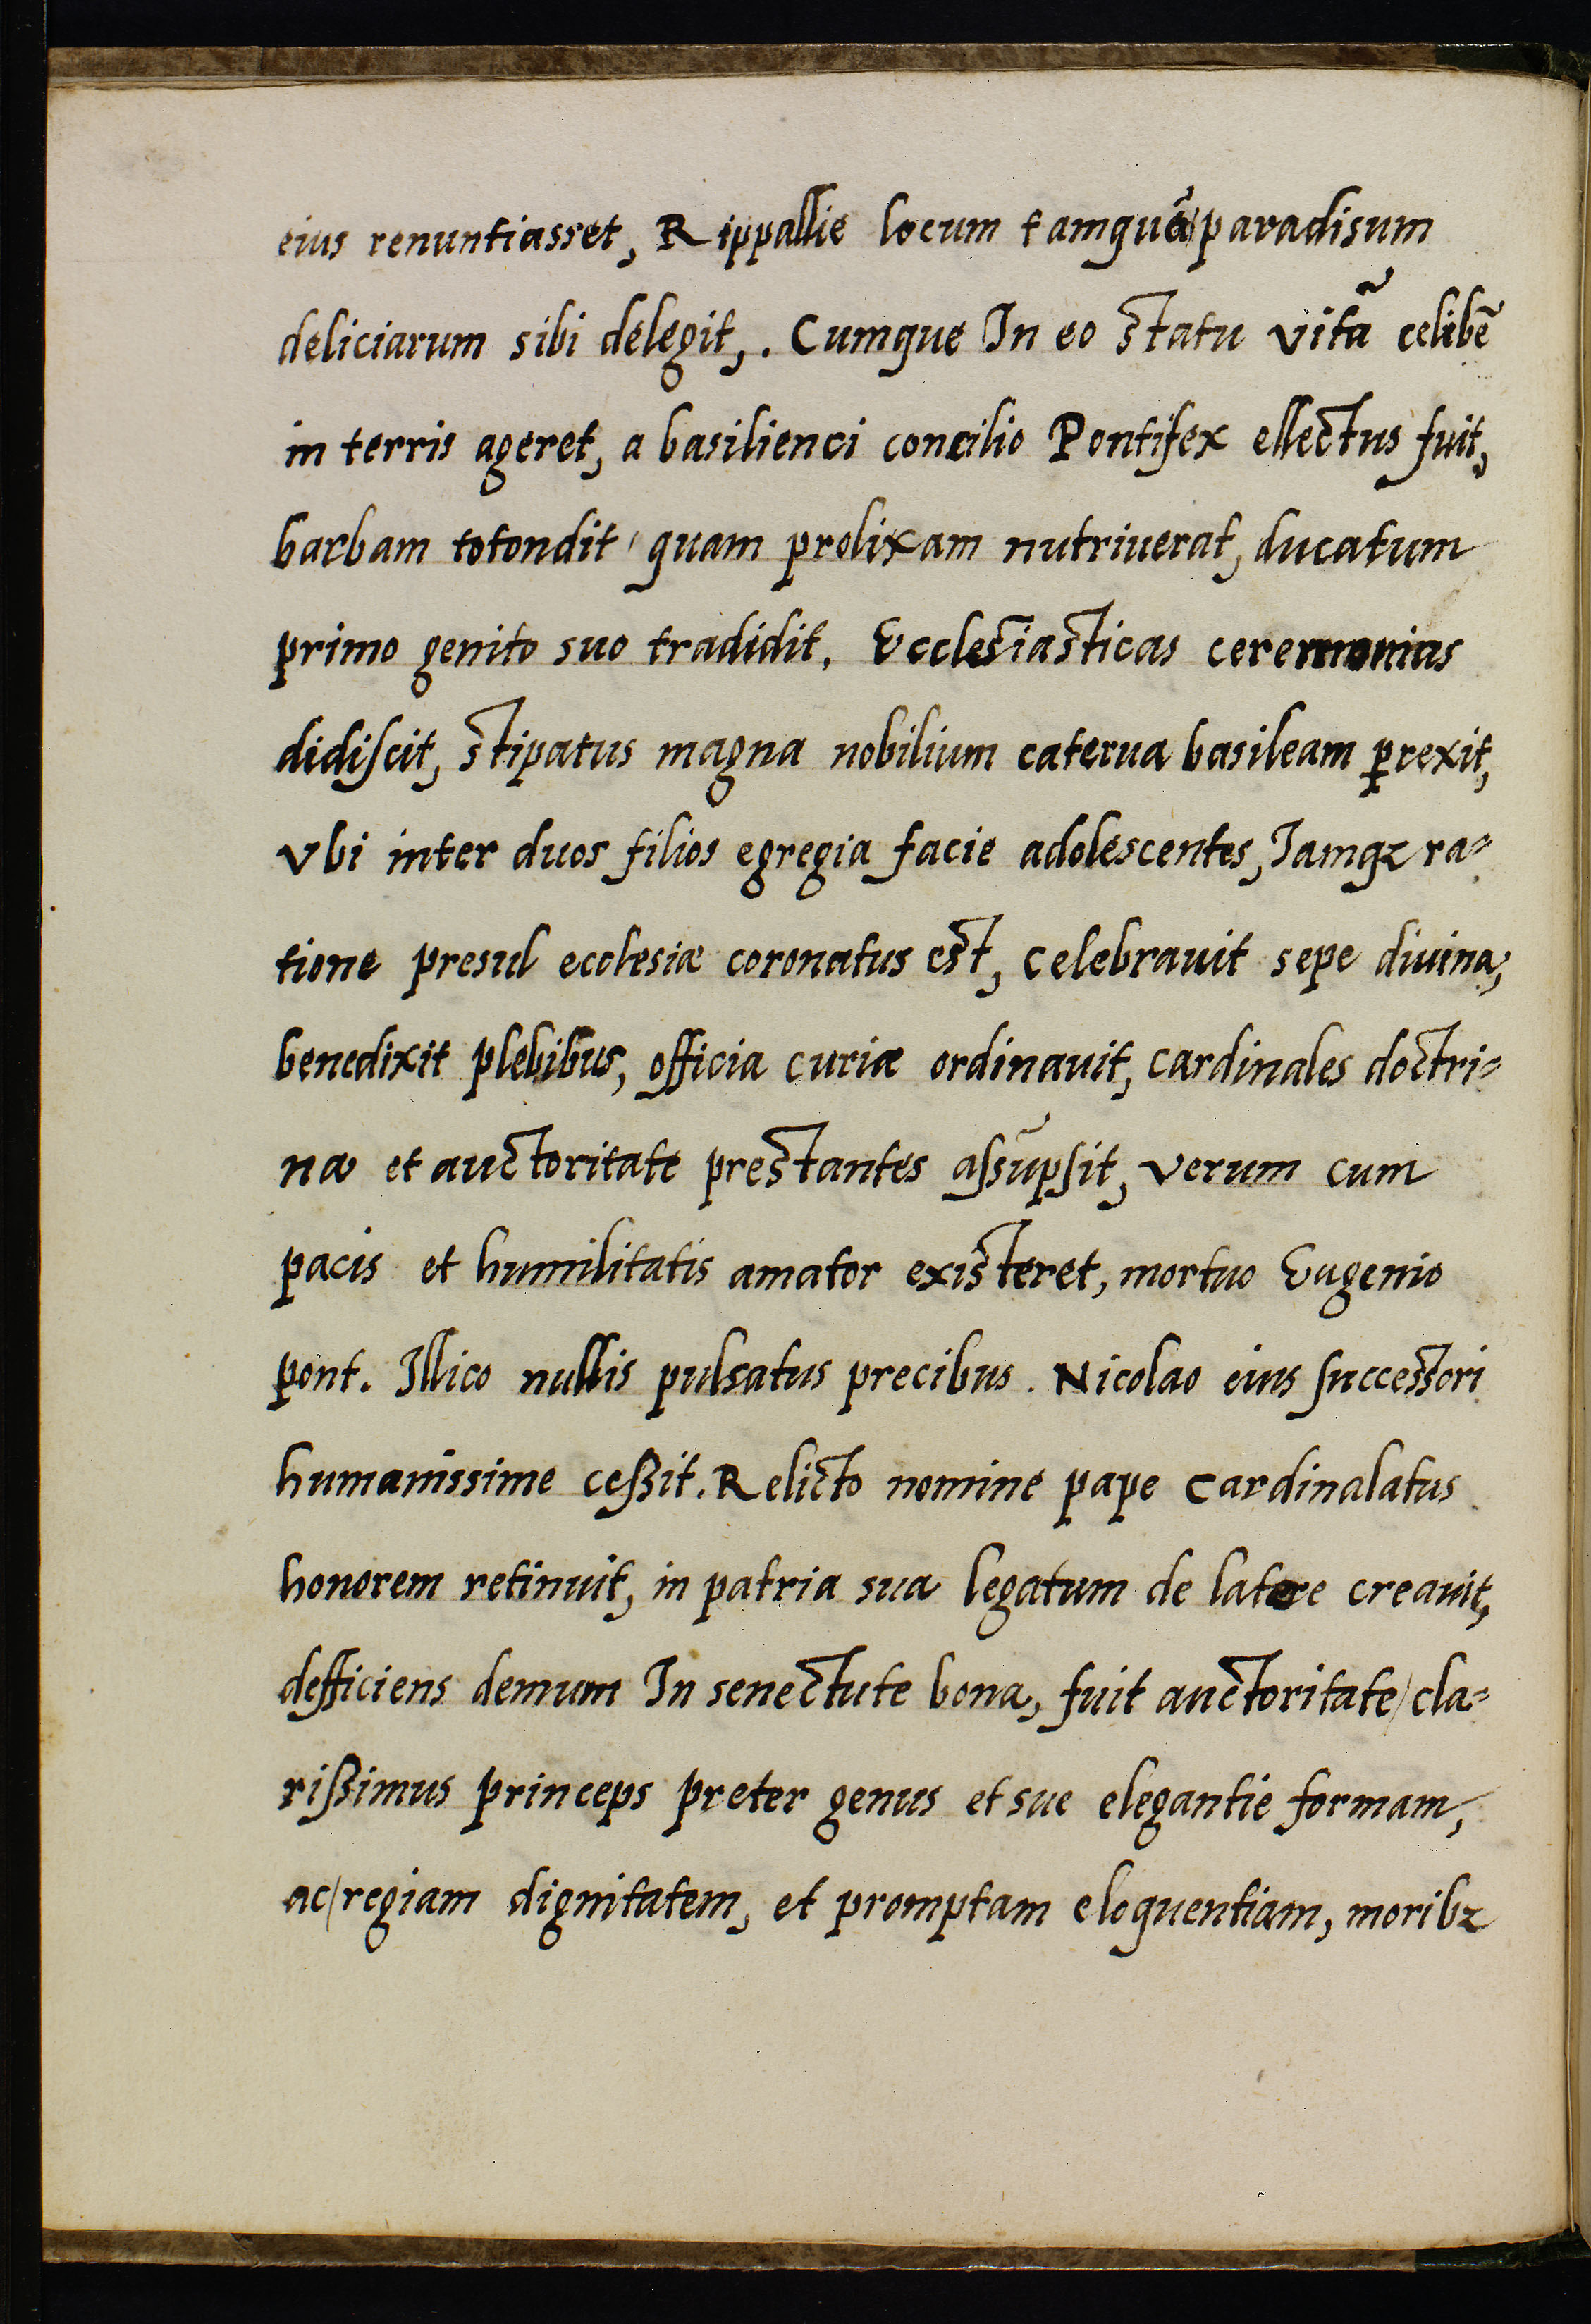 eius renuntiasset, Rippallie locum tamquã paradisum
deliciarum sibi delegit,. Cumque In eo statu vitã celibẽ
in terris ageret, a basilienci concilio Pontifex ellectus fuit,
barbam totondit / quam prolixam nutriuerat, ducatum
primo genito suo tradidit. Ecclesiasticas ceremonias
didiſcit, stipatus magna nobilium caterua basileam ꝑrexit,
vbi inter duos filios egregia facie adolescentes, Iamqz ra-
tione presul ecclesiæ coronatus est, celebrauit sepe diuina,
benedixit plebibus, officia curiæ ordinauit, cardinales doctri-
na et auctoritate prestantes aſsũpſit, verum cum
pacis et humilitatis amator existeret, mortuo Eugenio
pont. Illico nullis pulsatus precibus. Nicolao eius ſuccessori
humanissime ceßit. Relicto nomine pape cardinalatus
honorem retinuit, in patria sua legatum de latere creauit,
defficiens demum In senectute bona, fuit auctoritate / cla-
rißimus princeps preter genus et sue elegantie formam,
ac / regiam dignitatem, et promptam eloquentiam, moribz